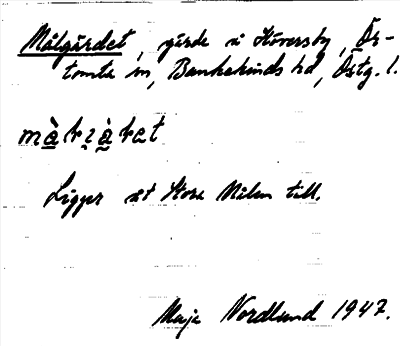 Målgärdet, gärde i Höversby, Ör-
tomta sn, Bankekinds hd, Östg. l.
Ligger åt Stora Målen till.
Maja Nordlund 1947.